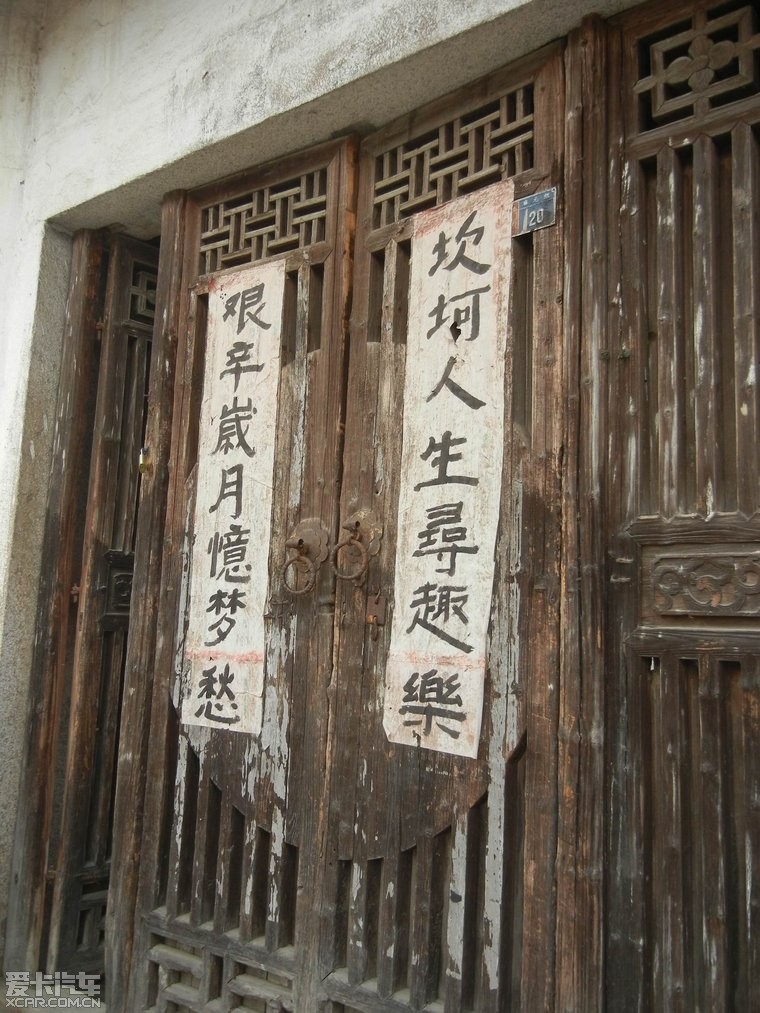 坎坷人生尋趣樂
艰辛歲月憶梦愁
20
爱卡汽车
XCAR.COM.CN